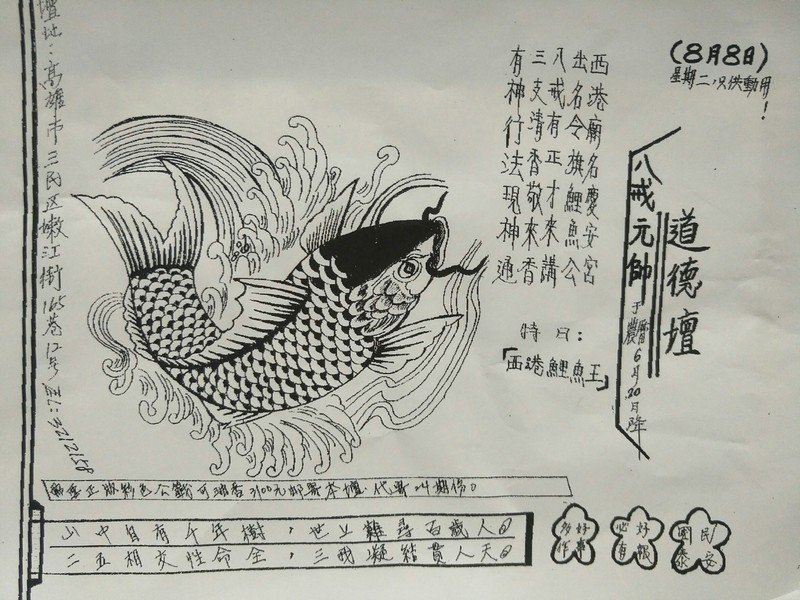 (8月8日)
星期二、只供動用!
道德壇
八戒元帥
于農曆6月20日降
西港廟名慶安宮
出名令旗鯉魚公
八戒有正才來講
三支清香敬來香
有神行法現神通
時日:
「西港鯉魚王」
壇址:高雄市三民区嫩江街165巷12号
正版彩色公籤可油香 元郵寄本壇、代寄24期份。
山中自有千年樹,世上難尋百歲人
二五相交性命全, 凝結貫人天
好事
多作
好報
心有
民安
國泰